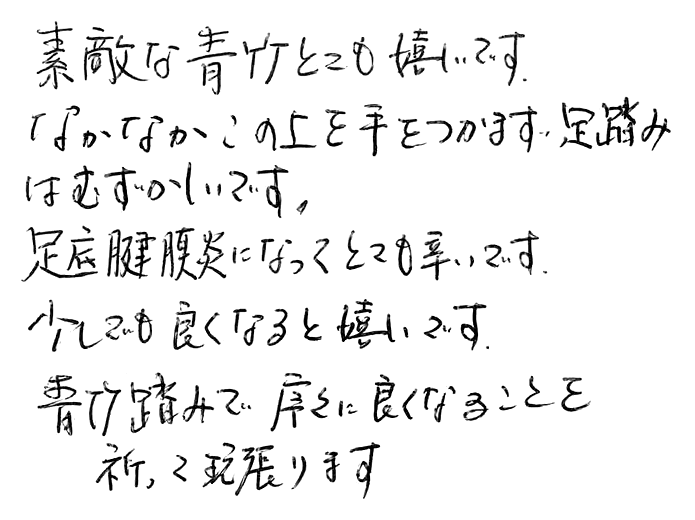 素敵な青竹とても嬉しいです.
なかなかこの上を手をつかます、足踏み
はむずかしいです,
足底腱膜炎になってとても辛いです.
少しでも良くなると嬉しいです.
青竹踏みで序々に良くなることを
祈って頑張ります